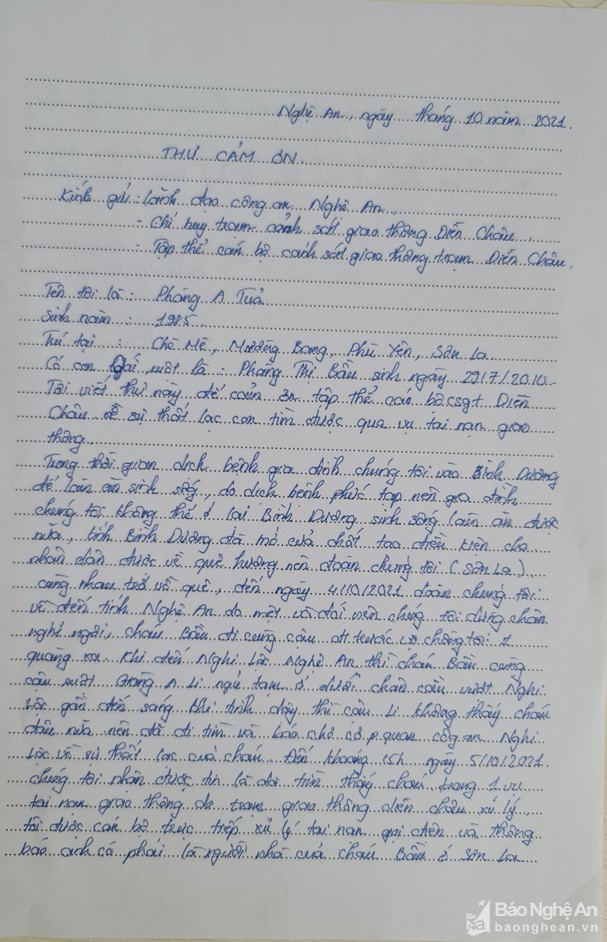 Nghệ An, ngày tháng 10 năm 2021.
THƯ CẢM ƠN.
Kính gửi: Lãnh đạo công an Nghệ An
Chỉ huy trạm cảnh sát giao thông Diễn Châu.
Tập thể cán bộ cảnh sát giao thông trạm Diễn Châu.
Tên tôi là: Pháng A Tuả
Sinh năm: 1985.
Trú tại: Chè Mè, Mường Bang, Phù Yên, Sơn La
Có con gái ruột là: Pháng Thị Bầu sinh ngày 29/7/2010.
Tôi viết thư này để cảm ơn tập thể cán bộ csgt Diễn
Châu về sự thất lạc con tìm được qua vụ tai nạn giao
thông
Trong thời gian dịch bệnh gia đình chúng tôi vào Bình Dương
để làm ăn sinh sống, do dịch bệnh phức tạp nên gia đình
chúng tôi không thể ở lại Bình Dương sinh sống làm ăn được
nữa, tỉnh Bình Dương đã mở cửa chốt tạo điều kiện cho
nhân dân được về quê hương nên đoàn chúng tôi (Sơn La)
cùng nhau trở về quê, đến ngày 4/10/2021 đoàn chúng tôi
về đến tỉnh Nghệ An do mệt và đói nên chúng tôi dừng chân
nghỉ ngơi, cháu Bầu đi cùng cậu đi trước vợ chồng tôi 1
quãng xa. Khi đến Nghi Lộc Nghệ An thì cháu Bầu cùng
cậu ruột Giàng A Li ngủ tạm ở dưới chân cầu vượt Nghi
Lộc gần đến sáng khi tỉnh dậy thì cậu Li không thấy cháu
đâu nữa nên đã đi tìm và báo cho cơ quan công an Nghi
Lộc về sự thất lạc của cháu. Đến khoảng 15h ngày 5/10/2021
chúng tôi nhận được tin là đã tìm thấy cháu trong 1 vụ
tai nạn giao thông do trạm giao thông diễn châu xử lý,
tôi được cán bộ trực tiếp xử lý tai nạn gọi điện và thông
báo anh có phải là người nhà của cháu Bầu ở Sơn La
Báo Nghệ An
baonghean.vn